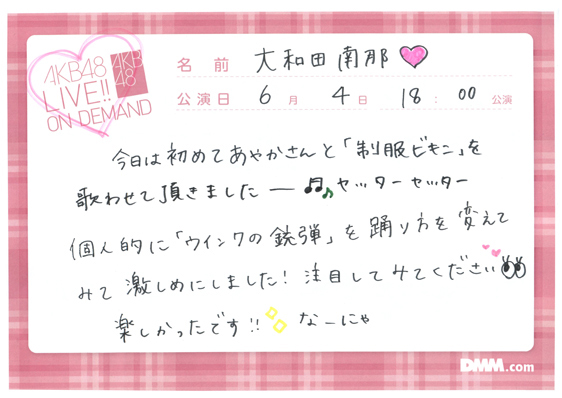 AKB48
LIVE!!
ON DEMAND
AKB
48
名前 大和田南那
公演日 6月 4日 18:00 公演
今日は初めてあやかさんと「制服ビキニ」を
歌わせて頂きましたー ヤッターセッター
個人的に「ウインクの銃弾」を踊り方を変えて
みて激しめにしました!注目してみてください
楽しかったです!! なーにゃ
DMM.com